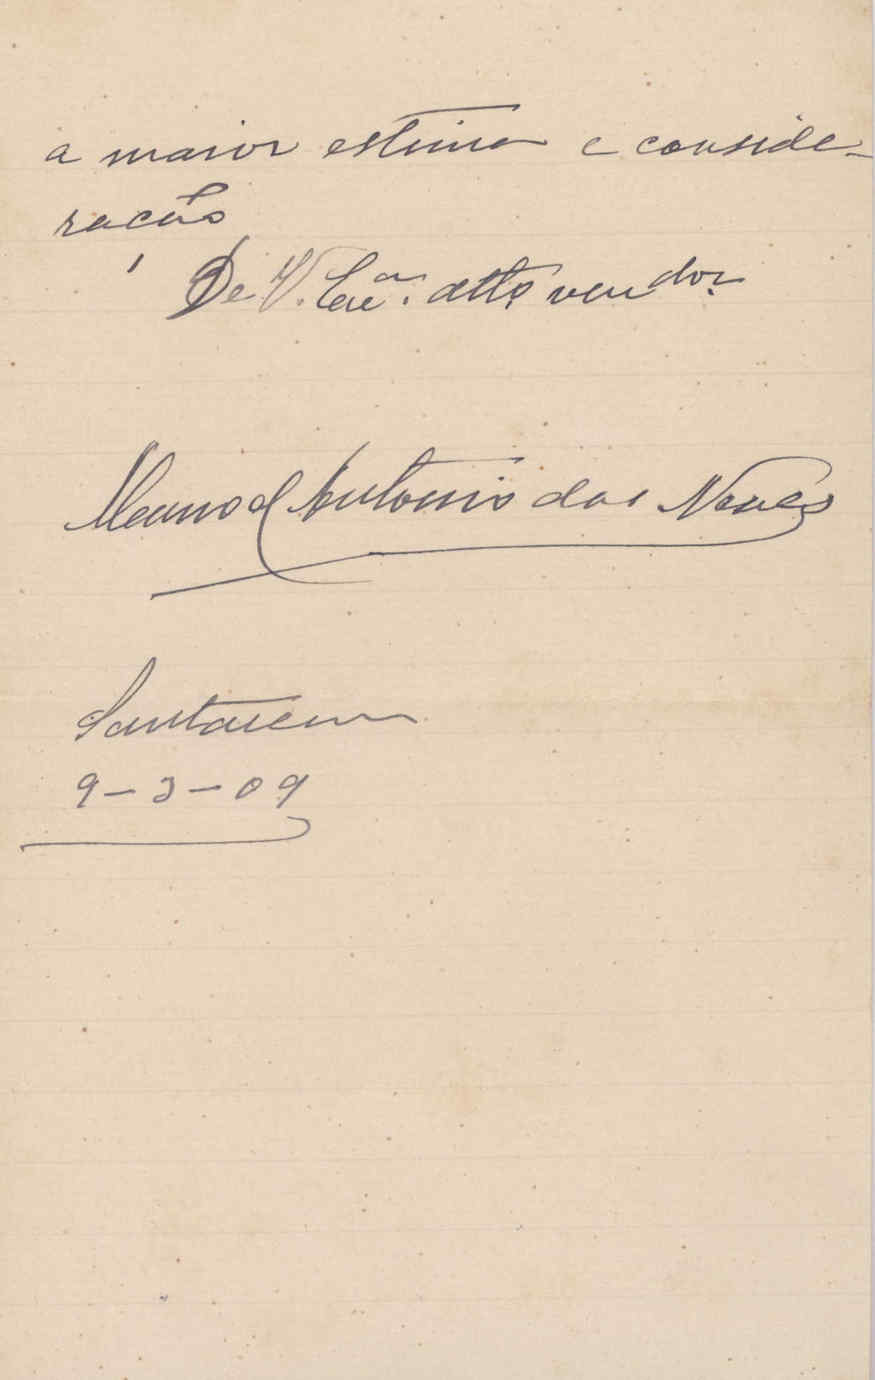 a maior estima e conside-
ração
De V. Exª. attº vendor.
Manoel Antonio das Neves
Santarem
9-3-09